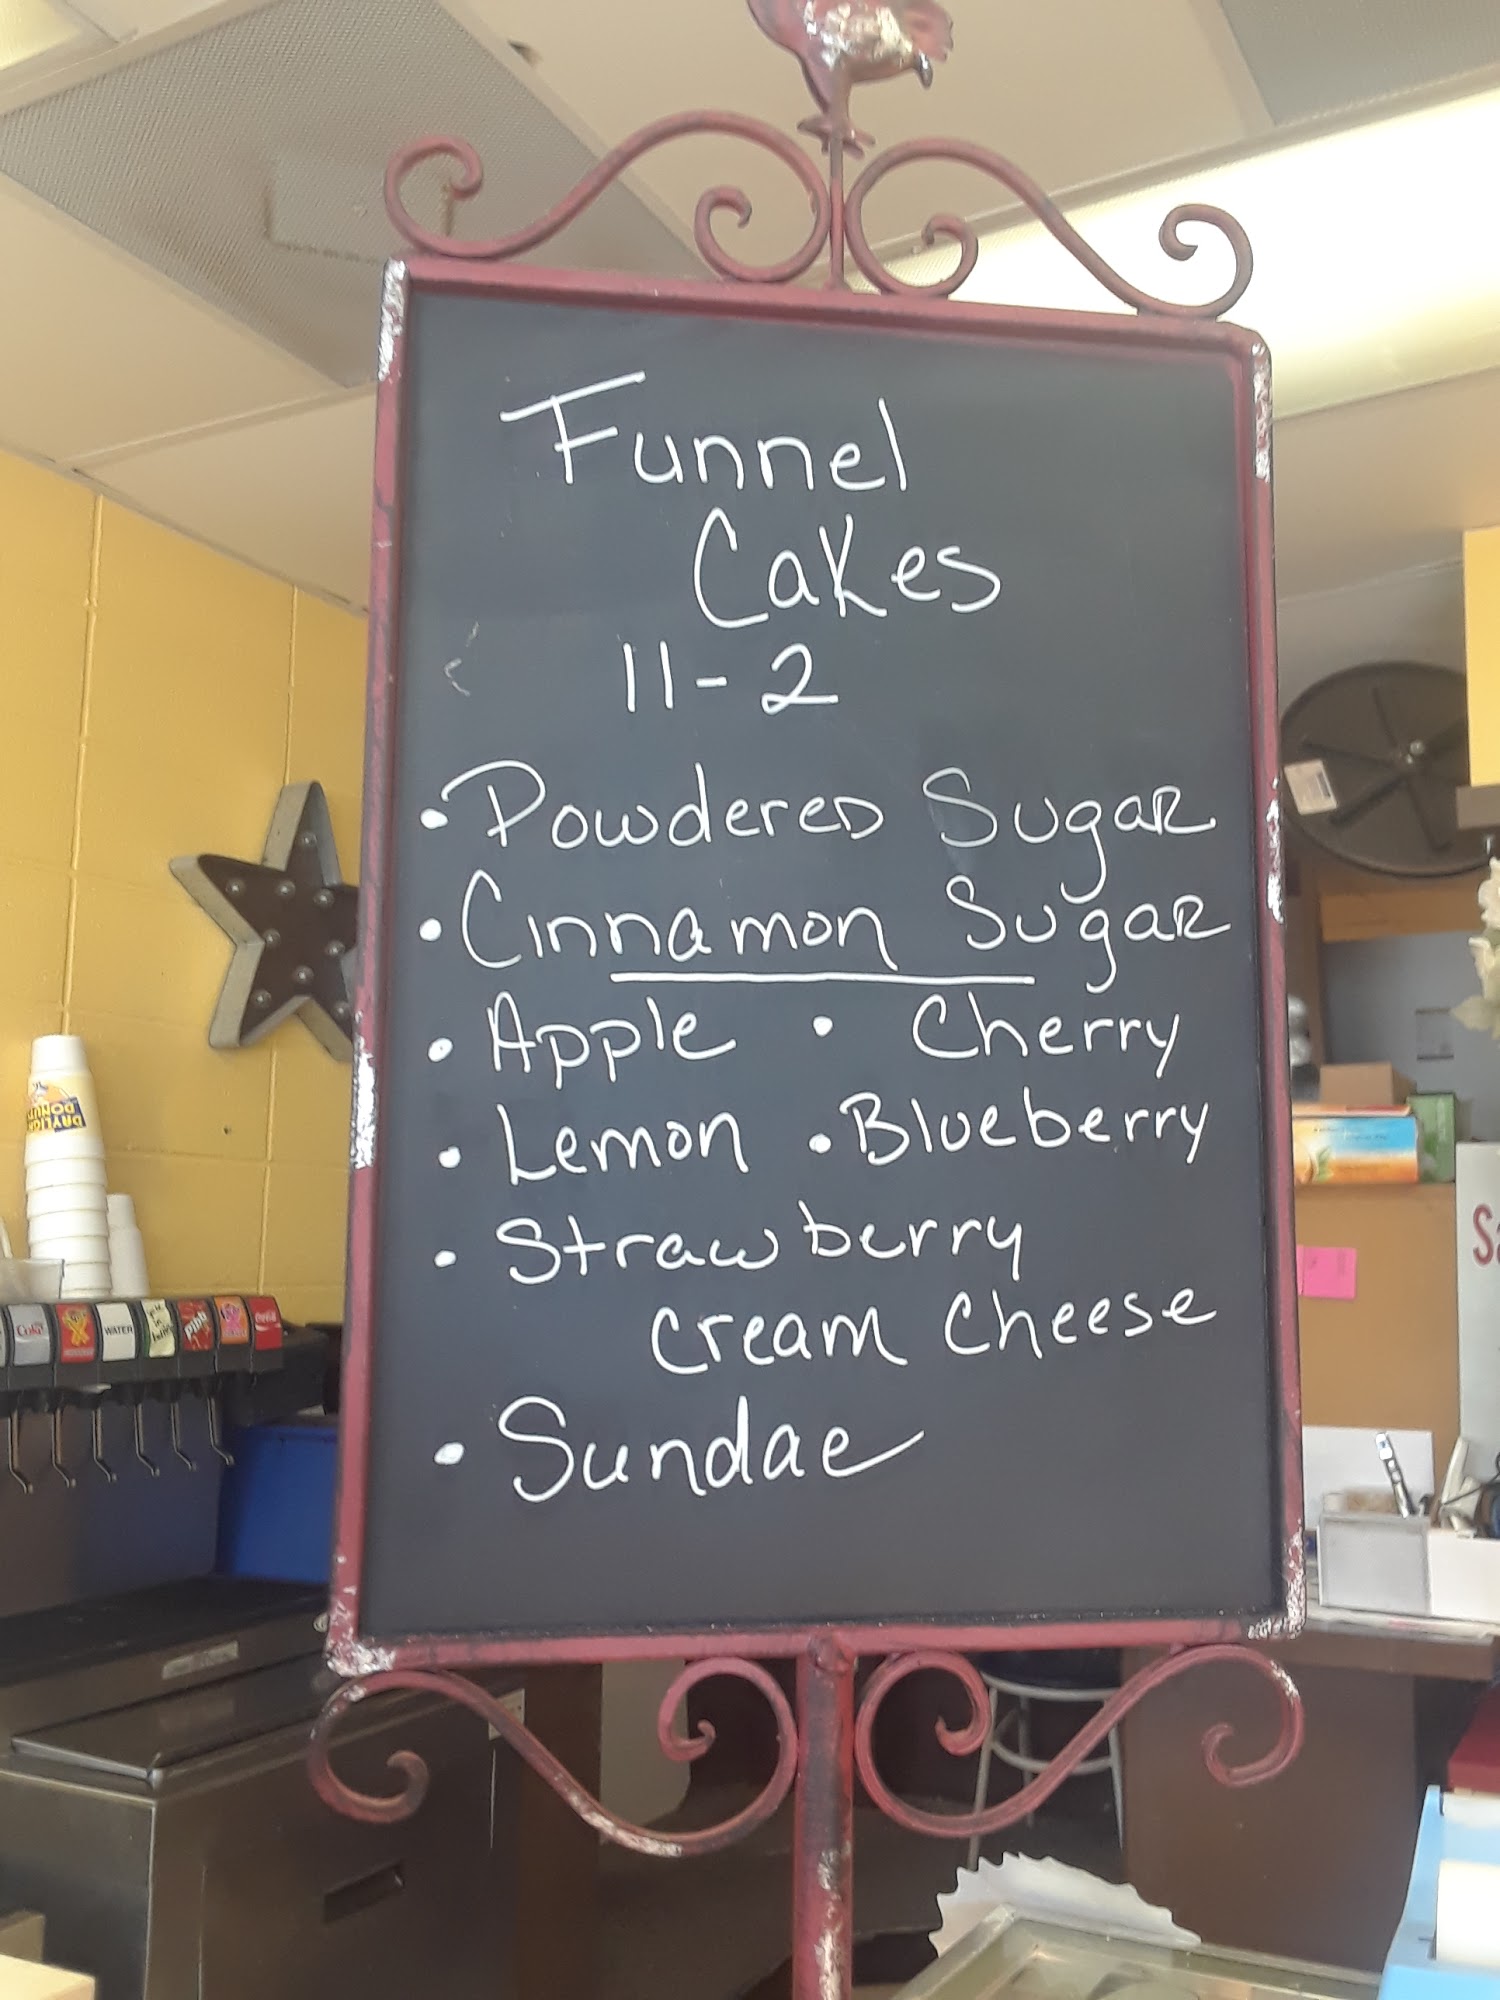 Funnel
Cakes
11-2
• Powdered Sugar
• Cinnamon Sugar
• Apple • Cherry
• Lemon • Blueberry
• Strawberry
Cream Cheese
• Sundae
DAYLIGHT
DONUTS
Coke
WATER
PIBB
Coca-Cola